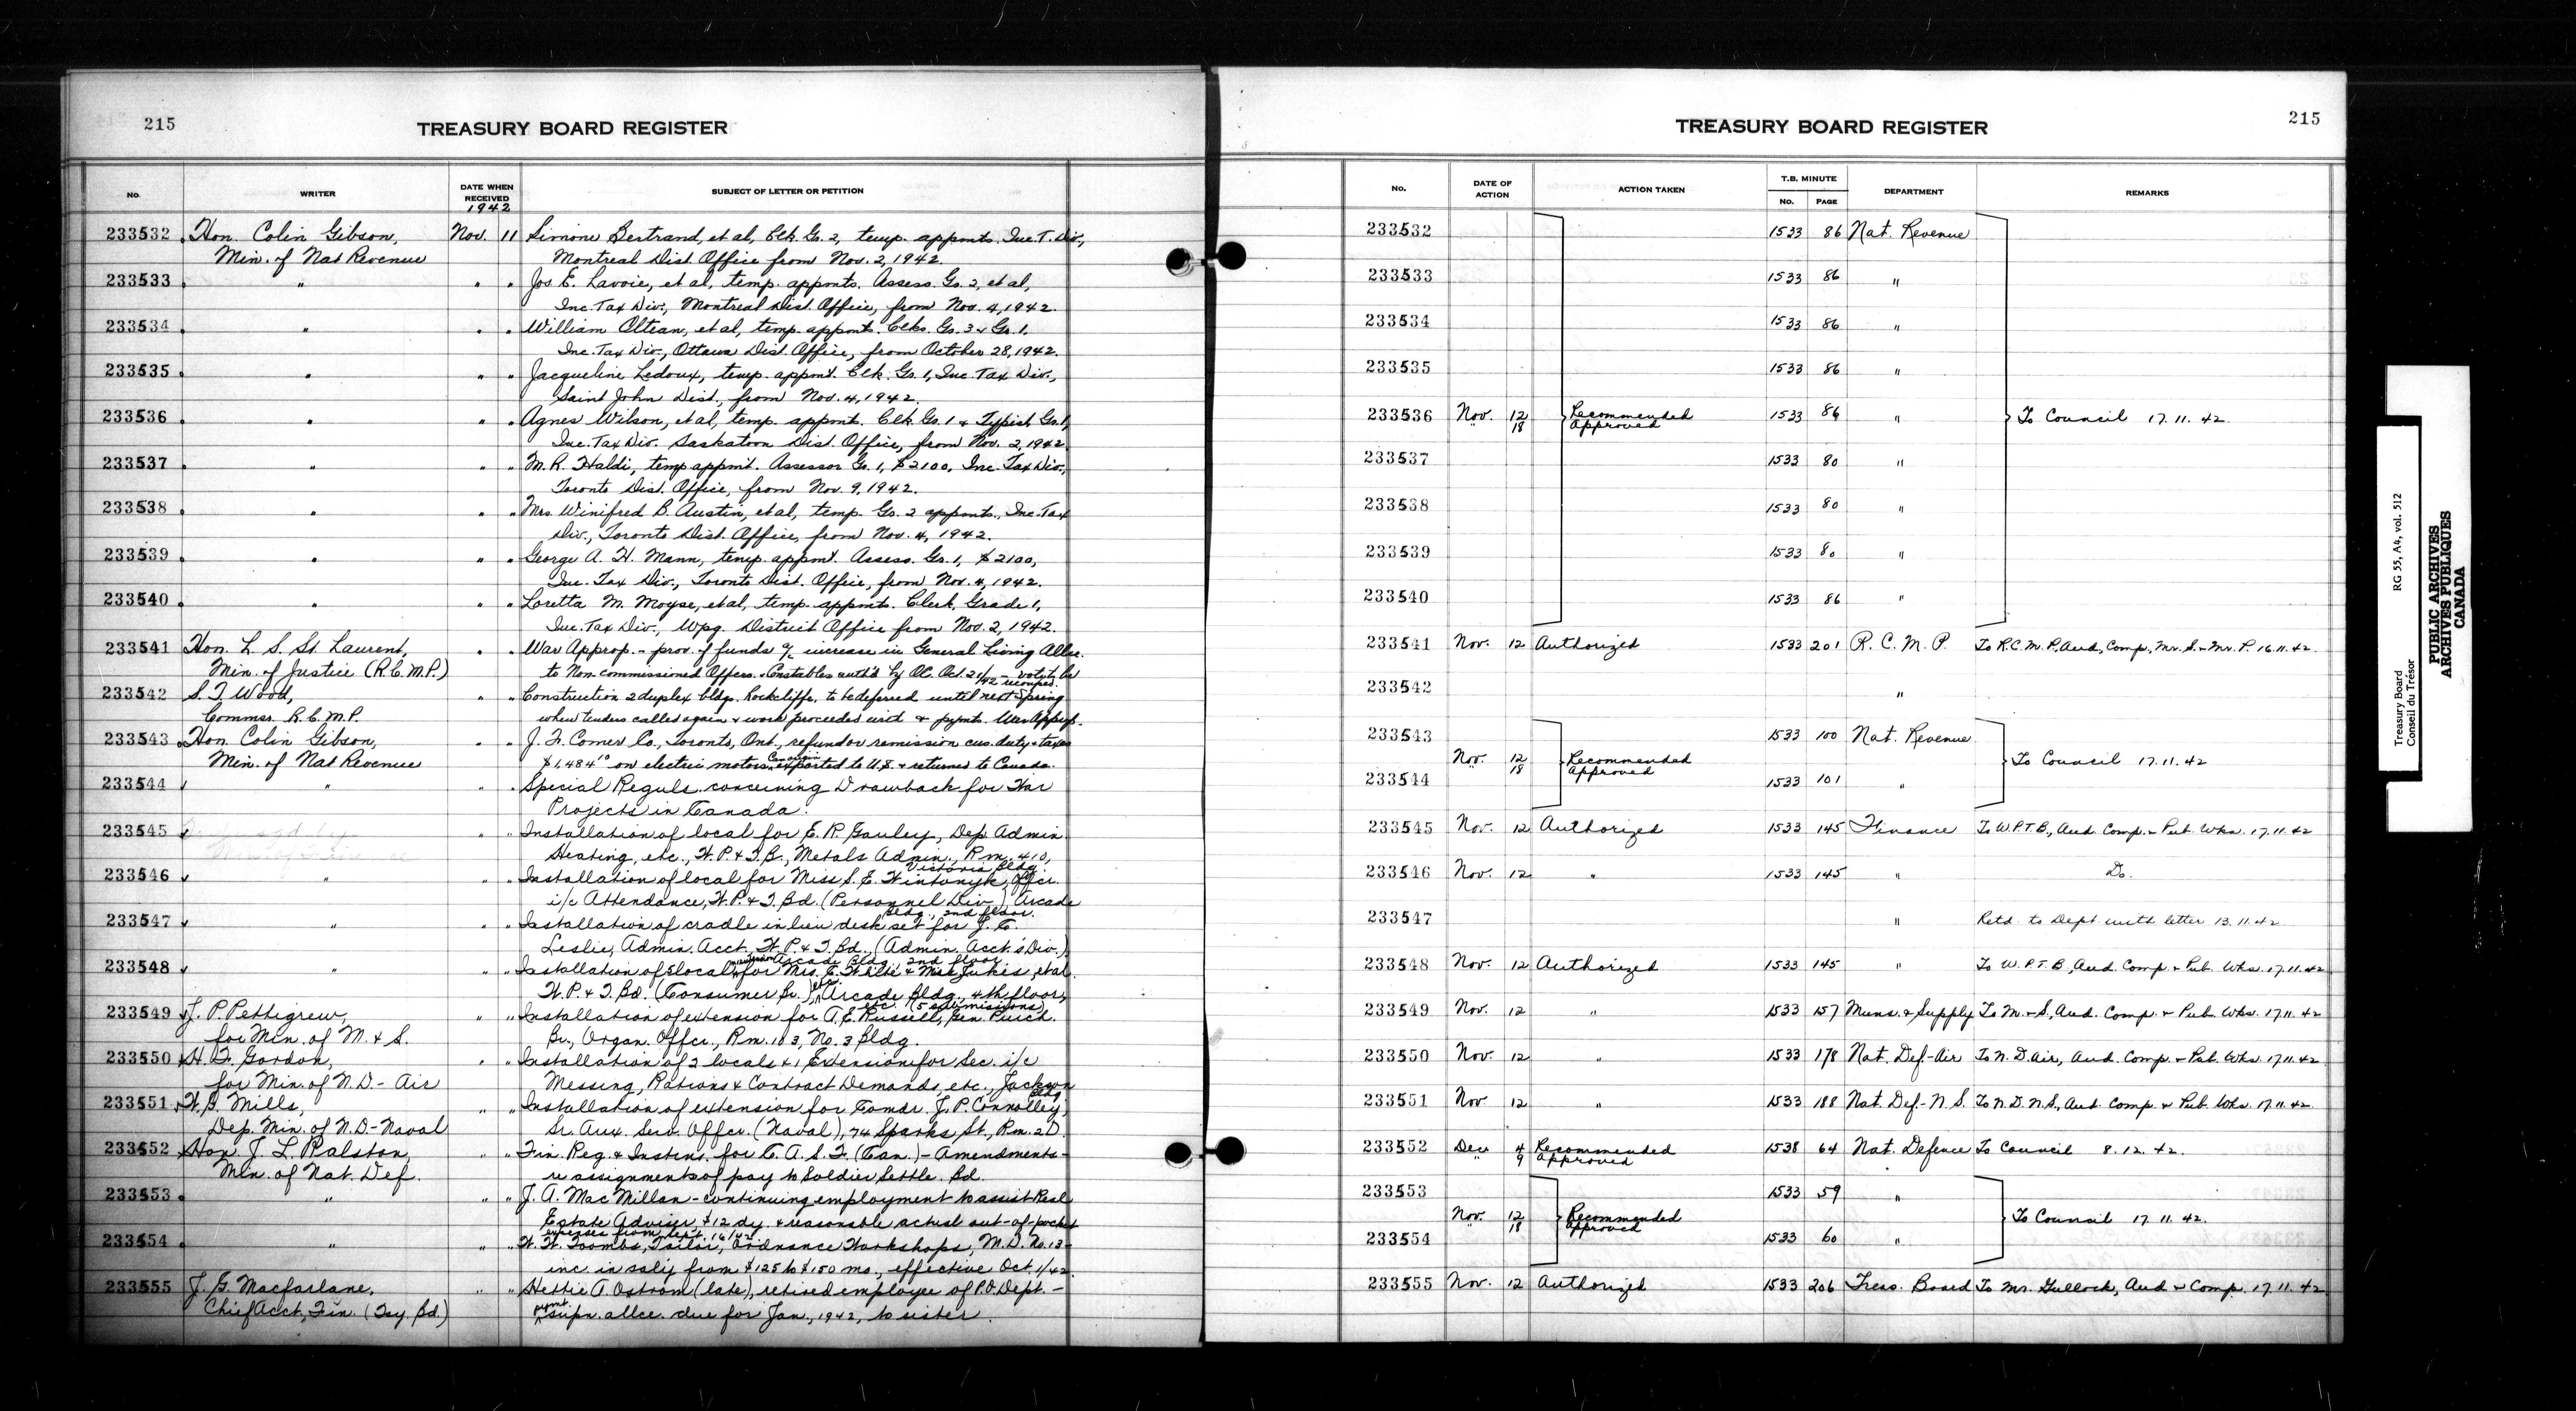 215
TREASURY BOARD REGISTER
No. WRITER DATE WHEN RECEIVED SUBJECT OF LETTER OR PETITION
1942
233532 Hon. Colin Gibson, Nov. 11 Simone Bertrand, et al, Clk. Gr. 2, temp. appmts. Inc. T. Div.,
Min. of Nat Revenue Montreal Dist. Office from Nov. 2, 1942.
233533 " " " Jos. E. Lavoie, et al, temp. appmts. Assess. Gr. 2, et al,
Inc. Tax Div., Montreal Dist. Office, from Nov. 4, 1942.
233534 " " " William Oltean, et al, temp. appmt. Clks. Gr. 3 & Gr. 1,
Inc. Tax Div., Ottawa Dist. Office, from October 28, 1942.
233535 " " " Jacqueline Ledoux, temp. appmt. Clk. Gr. 1, Inc. Tax Div.,
Saint John Dist., from Nov. 4, 1942.
233536 " " " Agnes Wilson, et al, temp. appmt. Clk. Gr. 1 & Typist Gr. 1,
Inc. Tax Div. Saskatoon Dist. Office, from Nov. 2, 1942
233537 " " " M. R. Haldi, temp appmt. Assessor Gr. 1, $2100, Inc. Tax Div.,
Toronto Dist. Office, from Nov. 9, 1942.
233538 " " " Mrs. Winifred B. Austin, et al, temp. Gr. 2 appmts., Inc. Tax
Div., Toronto Dist. Office, from Nov. 4, 1942.
233539 " " " George A. H. Mann, temp. appmt. Assess. Gr. 1, $2100,
Inc. Tax Div., Toronto Dist. Office, from Nov. 4, 1942.
233540 " " " Loretta M. Moyse, et al, temp. appmts. Clerk, Grade 1,
Inc. Tax Div., Wpg. District Office from Nov. 2, 1942.
233541 Hon. L. S. St. Laurent, " " War Approp. - prov. of funds increase in General Living Allce.
Min. of Justice (R.C.M.P.) to Non-commissioned Offcrs. & Constables auth'd by OC. Oct. 21/42 - vote to be recouped.
233542 S. T. Wood, " " Construction 2 duplex bldgs. Rockcliffe, to be deferred until next Spring
Commsr. R.C.M.P. when tenders called again & work proceeded with & pymts. War Approp.
233543 Hon. Colin Gibson, " " J. F. Comer Co., Toronto, Ont., refund or remission cus. duty & taxes
Min. of Nat Revenue $1,484.10 on electric motors exported to U.S. & returned to Canada.
233544 " " " Special Reguls. concerning Drawback for War
Projects in Canada.
233545 " " Installation of local for E. R. Gauley, Dep. Admin
Heating, etc., W.P. & T.B., Metals Admin., Rm. 410,
Victoria Bldg
233546 " " " Installation of local for Miss S. E. Wintonyk, Offcr.
i/c Attendance, W.P. & T. Bd. (Personnel Div.) Arcade
Bldg., 2nd floor.
233547 " " " Installation of cradle in lieu desk set for J. C.
Leslie, Admin. Acct., W.P. & T. Bd. (Admin. Acct.'s Div.)
Arcade Bldg., 2nd floor
233548 " " " Installation of 5 local for Mrs. C. White & Miss Jukis, et al
W.P. & T. Bd. (Consumer Br.), etc. Arcade Bldg., 4th floor,
etc. (5 submissions)
233549 J. P. Pettigrew, " " Installation of extension for A. E. Russell, Gen. Purch.
for Min. of M. & S. Br., Organ. Offcr., Rm. 103, No. 3 Bldg.
233550 H. F. Gordon, " " Installation of 2 locals & 1 Extension for Sec. i/c
for Min. of N.D - Air Messing, Rations & Contract Demands, etc., Jackson
Bldg
233551 W. G. Mills, " " Installation of extension for Comdr. J. P. Connolley,
Dep. Min. of N.D - Naval Sr. Aux. Serv. Offcr. (Naval), 74 Sparks St., Rm. 20.
233552 Hon. J. L. Ralston, " " Fin. Reg. & Instrns. for C.A.S.F. (Can.) - Amendments
Min. of Nat. Def. re assignments of pay to Soldier Settle. Bd.
233553 " " " J. A. MacMillan - continuing employment to assist Real
Estate Adviser, $12 dy. & reasonable actual out-of-pocket
expenses from Sept. 16/42.
233554 " " " W. W. Toombs, Tailor, Ordnance Workshops, M.D. No. 13
inc. in saly from $125 to $150 mo., effective Oct. 1/42
233555 J. G. Macfarlane, " " Hettie A. Ostrom (late), retired employee of P.O Dept. -
Chief Acct., Fin. (Tsy. Bd.) pymt. supn. allce. due for Jan., 1942, to sister.
215
TREASURY BOARD REGISTER
No. DATE OF ACTION ACTION TAKEN T.B. MINUTE No. PAGE DEPARTMENT REMARKS
233532 1533 86 Nat. Revenue
233533 1533 86 "
233534 1533 86 "
233535 1533 86 "
233536 Nov. 12 Recommended 1533 86 " To Council 17.11.42.
" 18 Approved
233537 1533 80 "
233538 1533 80 "
233539 1533 80 "
233540 1533 86 "
233541 Nov. 12 Authorized 1533 201 R.C.M.P. To R.C.M.P. Aud, Comp, Mr. S. & Mr. P. 16.11.42.
233542 "
233543 1533 100 Nat. Revenue
Nov. 12 Recommended To Council 17.11.42
" 18 Approved
233544 1533 101 "
233545 Nov. 12 Authorized 1533 145 Finance To W.P.T.B., Aud. Comp. & Pub. Wks. 17.11.42
233546 Nov. 12 " 1533 145 " Do.
233547 " Retd. to Dept with letter 13.11.42
233548 Nov. 12 Authorized 1533 145 " To W.P.T.B, Aud. Comp & Pub. Wks. 17.11.42
233549 Nov. 12 " 1533 157 Muns. & Supply To M. & S., Aud. Comp. & Pub. Wks. 17.11.42
233550 Nov. 12 " 1533 178 Nat. Def-Air To N.D. Air, Aud. Comp & Pub. Wks. 17.11.42
233551 Nov. 12 " 1533 188 Nat. Def.-N.S. To N.D.N.S., Aud. Comp. & Pub. Wks. 17.11.42.
233552 Dec 4 Recommended 1538 64 Nat. Defence To Council 8.12.42.
" 9 Approved
233553 1533 59 "
Nov. 12 Recommended To Council 17.11.42.
" 18 Approved
233554 1533 60 "
233555 Nov. 12 Authorized 1533 206 Treas. Board To Mr. Gullock, Aud & Comp. 17.11.42
Treasury Board RG 55, A4, vol. 512
Conseil du Trésor
PUBLIC ARCHIVES
ARCHIVES PUBLIQUES
CANADA